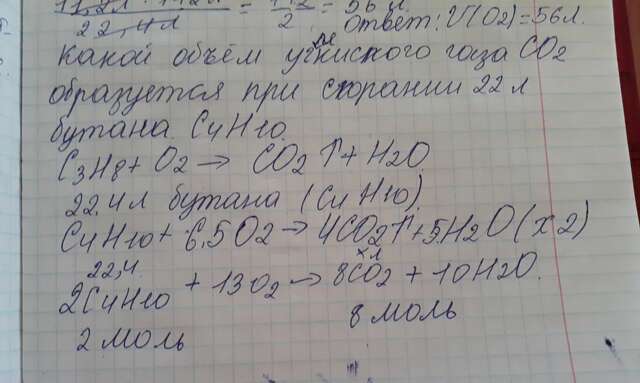 22,4л 2 Ответ: V(O2)=56л.
Какой объём углекислого газа CO2
образуется при сгорании 22 л
бутана C4H10.
C3H8 + O2 → CO2↑ + H2O
22,4л бутана (C4H10).
C4H10 + 6,5O2 → 4CO2↑ + 5H2O (x2)
22,4 x л
2C4H10 + 13O2 → 8CO2 + 10H2O.
2 моль 8 моль